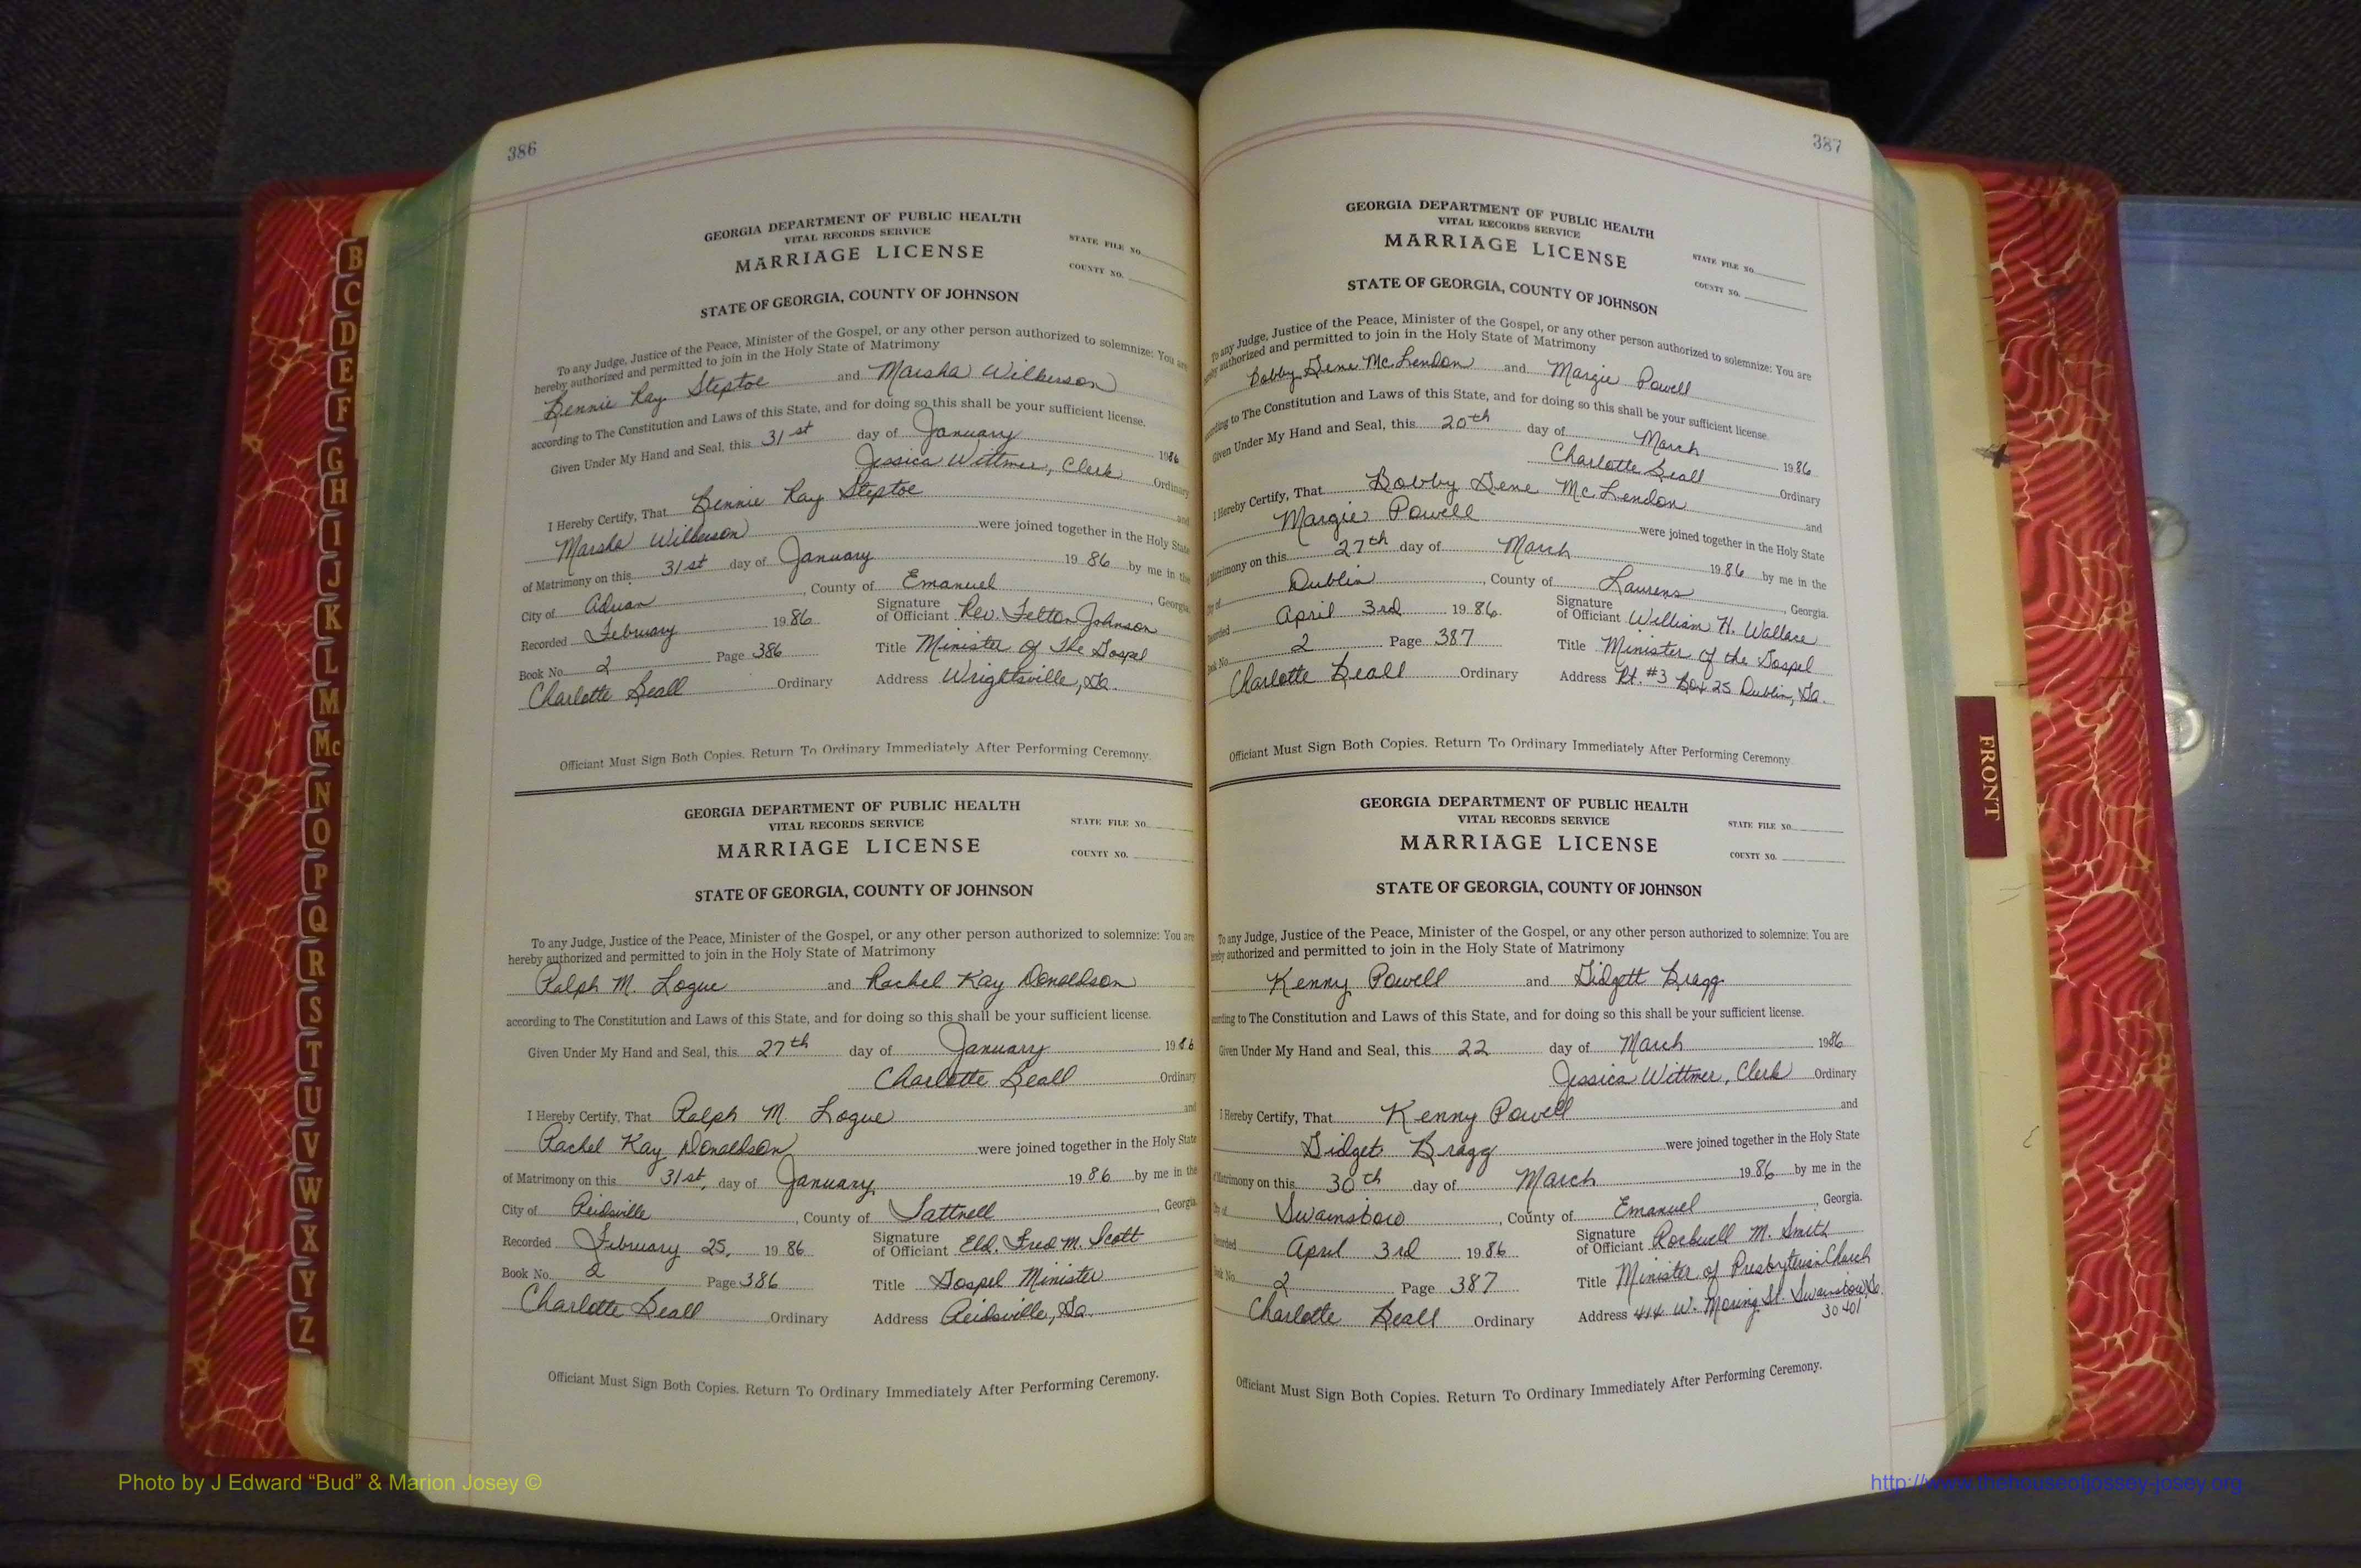 386
GEORGIA DEPARTMENT OF PUBLIC HEALTH
VITAL RECORDS SERVICE
MARRIAGE LICENSE
STATE FILE NO.
COUNTY NO.
STATE OF GEORGIA, COUNTY OF JOHNSON
To any Judge, Justice of the Peace, Minister of the Gospel, or any other person authorized to solemnize: You are
hereby authorized and permitted to join in the Holy State of Matrimony
Bennie Ray Steptoe and Marsha Wilkerson
according to The Constitution and Laws of this State, and for doing so this shall be your sufficient license.
Given Under My Hand and Seal, this 31st day of January 1986
Jessica Wittmer, Clerk Ordinary
I Hereby Certify, That Bennie Ray Steptoe and
Marsha Wilkerson were joined together in the Holy State
of Matrimony on this 31st day of January 1986 by me in the
City of Adrian, County of Emanuel, Georgia
Recorded February 1986 Signature of Officiant Rev. Felton Johnson
Book No. 2 Page 386 Title Minister of The Gospel
Charlotte Beall Ordinary Address Wrightsville, Ga.
Officiant Must Sign Both Copies. Return To Ordinary Immediately After Performing Ceremony.
GEORGIA DEPARTMENT OF PUBLIC HEALTH
VITAL RECORDS SERVICE
MARRIAGE LICENSE
STATE FILE NO.
COUNTY NO.
STATE OF GEORGIA, COUNTY OF JOHNSON
To any Judge, Justice of the Peace, Minister of the Gospel, or any other person authorized to solemnize: You are
hereby authorized and permitted to join in the Holy State of Matrimony
Ralph M. Logue and Rachel Kay Donaldson
according to The Constitution and Laws of this State, and for doing so this shall be your sufficient license.
Given Under My Hand and Seal, this 27th day of January 1986
Charlotte Beall Ordinary
I Hereby Certify, That Ralph M. Logue and
Rachel Kay Donaldson were joined together in the Holy State
of Matrimony on this 31st, day of January, 1986 by me in the
City of Reidsville, County of Tattnell, Georgia
Recorded February 25, 1986 Signature of Officiant Eld. Fred M. Scott
Book No. 2 Page 386 Title Gospel Minister
Charlotte Beall Ordinary Address Reidsville, Ga.
Officiant Must Sign Both Copies. Return To Ordinary Immediately After Performing Ceremony.
387
GEORGIA DEPARTMENT OF PUBLIC HEALTH
VITAL RECORDS SERVICE
MARRIAGE LICENSE
STATE FILE NO.
COUNTY NO.
STATE OF GEORGIA, COUNTY OF JOHNSON
To any Judge, Justice of the Peace, Minister of the Gospel, or any other person authorized to solemnize: You are
hereby authorized and permitted to join in the Holy State of Matrimony
Bobby Gene McLendon and Margie Powell
according to The Constitution and Laws of this State, and for doing so this shall be your sufficient license.
Given Under My Hand and Seal, this 20th day of March 1986
Charlotte Beall Ordinary
I Hereby Certify, That Bobby Gene McLendon and
Margie Powell were joined together in the Holy State
of Matrimony on this 27th day of March 1986 by me in the
City of Dublin, County of Laurens, Georgia.
Recorded April 3rd 1986 Signature of Officiant William H. Wallace
Book No. 2 Page 387 Title Minister of the Gospel
Charlotte Beall Ordinary Address Rt. #3 Box 25 Dublin, Ga.
Officiant Must Sign Both Copies. Return To Ordinary Immediately After Performing Ceremony.
GEORGIA DEPARTMENT OF PUBLIC HEALTH
VITAL RECORDS SERVICE
MARRIAGE LICENSE
STATE FILE NO.
COUNTY NO.
STATE OF GEORGIA, COUNTY OF JOHNSON
To any Judge, Justice of the Peace, Minister of the Gospel, or any other person authorized to solemnize: You are
hereby authorized and permitted to join in the Holy State of Matrimony
Kenny Powell and Gidgett Bragg
according to The Constitution and Laws of this State, and for doing so this shall be your sufficient license.
Given Under My Hand and Seal, this 22 day of March 1986
Jessica Wittmer, Clerk Ordinary
I Hereby Certify, That Kenny Powell and
Gidget Bragg were joined together in the Holy State
of Matrimony on this 30th day of March 1986 by me in the
City of Swainsboro, County of Emanuel, Georgia.
Recorded April 3rd 1986 Signature of Officiant Rockwell M. Smith
Book No. 2 Page 387 Title Minister of Presbyterian Church
Charlotte Beall Ordinary Address 414 W. Moring St. Swainsboro, Ga.
30401
Officiant Must Sign Both Copies. Return To Ordinary Immediately After Performing Ceremony.
B
C
D
E
F
G
H
I
J
K
L
M
Mc
N
O
P
Q
R
S
T
U
V
W
X
Y
Z
FRONT
Photo by J Edward “Bud” & Marion Josey ©
http://www.thehouseofjossey-josey.org